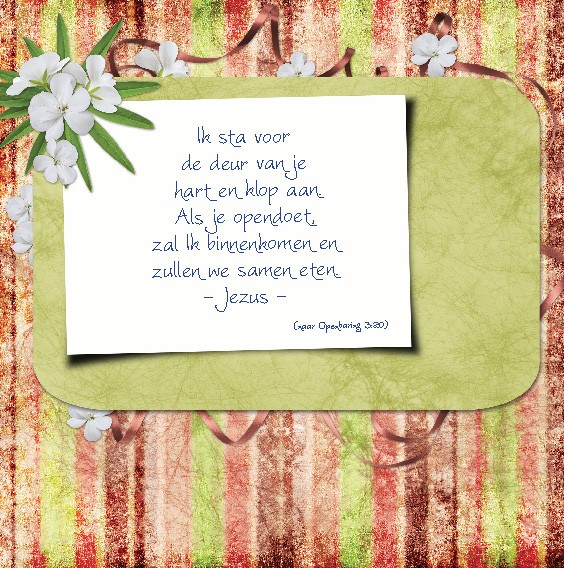 Ik sta voor
de deur van je
hart en klop aan.
Als je opendoet,
zal Ik binnenkomen en
zullen we samen eten.
- Jezus -
(naar Openbaring 3:20)